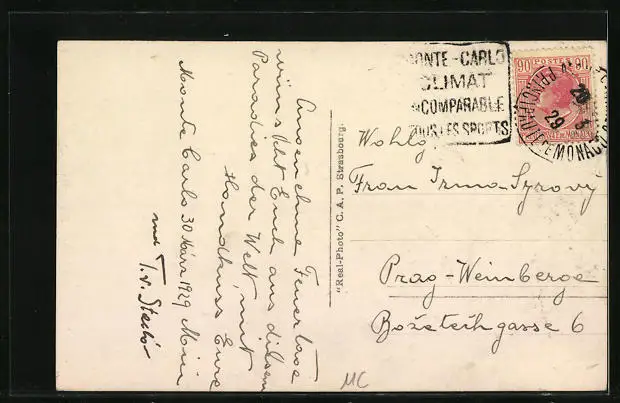 Angenehme Feiertage
wünscht Euch aus diesem
Paradies der Welt, mit
Handkuss Eure
Monte Carlo 30 März 1929
und
"Real-Photo" C. A. P. Strasbourg.
MONTE-CARLO
CLIMAT
INCOMPARABLE
TOUS LES SPORTS
90 POSTES 90
PRINCIPAUTÉ DE MONACO
29
Wohlg
Frau Irma Syrový
Prag-Weinberge
Božetěchgasse 6
MC